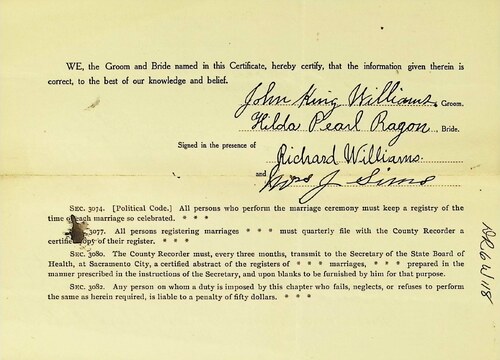 WE, the Groom and Bride named in this Certificate, hereby certify, that the information given therein is
correct, to the best of our knowledge and belief.
John King Williams, Groom.
Hilda Pearl Ragon, Bride.
Signed in the presence of
Richard Williams.
and Mrs J Sims
SEC. 3074. [Political Code.] All persons who perform the marriage ceremony must keep a registry of the
time of each marriage so celebrated. * * *
3077. All persons registering marriages * * * must quarterly file with the County Recorder a
certified copy of their register. * * *
SEC. 3080. The County Recorder must, every three months, transmit to the Secretary of the State Board of
Health, at Sacramento City, a certified abstract of the registers of * * * marriages, * * * prepared in the
manner prescribed in the instructions of the Secretary, and upon blanks to be furnished by him for that purpose.
SEC. 3082. Any person on whom a duty is imposed by this chapter who fails, neglects, or refuses to perform
the same as herein required, is liable to a penalty of fifty dollars. * * *